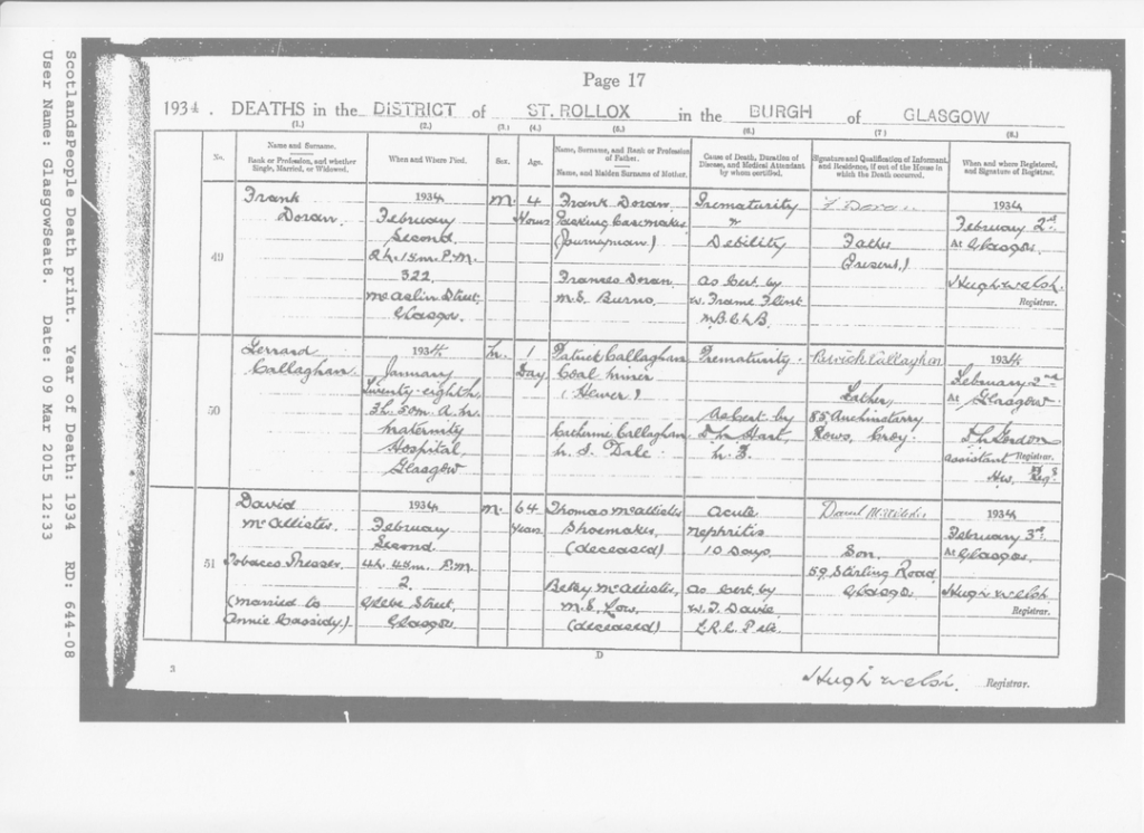 ScotlandsPeople Death print. Year of Death: 1934 RD: 644-08
User Name: GlasgowSeat8. Date: 09 Mar 2015 12:33
Page 17
1934. DEATHS in the DISTRICT of ST. ROLLOX in the BURGH of GLASGOW
(1.) (2.) (3.) (4.) (5.) (6.) (7.) (8.)
No.
Name and Surname.
Rank or Profession, and whether
Single, Married, or Widowed.
When and Where Died.
Sex.
Age.
Name, Surname, and Rank or Profession
of Father.
Name, and Maiden Surname of Mother.
Cause of Death, Duration of
Disease, and Medical Attendant
by whom certified.
Signature and Qualification of Informant,
and Residence, if out of the House in
which the Death occurred.
When and where Registered,
and Signature of Registrar.
49
Frank
Doran.
1934
February
Second.
2h. 15m. P.M.
322,
McAslin Street,
Glasgow.
M.
4
Hours
Frank Doran,
Packing Casemaker
(Journeyman)
Frances Doran,
M.S. Burns.
Prematurity
Debility
as Cert. by
W. Frame Flint
M.B.Ch.B.
F. Doran
Father
(Present.)
1934
February 2nd.
At Glasgow.
Hugh Welsh.
Registrar.
50
Gerrard
Callaghan.
1934
January
Twenty-eighth,
3h. 50m. A.M.
Maternity
Hospital,
Glasgow
M.
1
Day
Patrick Callaghan
Coal Miner
(Hewer)
Catherine Callaghan
M.S. Dale
Prematurity.
As Cert. by
Hart,
Patrick Callaghan
Father,
85 Auchinstarry
Rows, Croy.
1934
February 2nd
At Glasgow
Gordon
Assistant Registrar.
51
David
McAllister.
Tobacco Presser.
(Married to
Annie Cassidy.)
1934
February
Second.
4h. 45m. P.M.
2,
Glebe Street,
Glasgow.
M.
64
Years
Thomas McAllister
Shoemaker,
(deceased)
Betsy McAllister,
M.S. Low,
(deceased)
Acute
Nephritis
10 Days.
as Cert. by
Son.
59 Stirling Road
Glasgow
1934
February 3rd.
At Glasgow.
Hugh Welsh
Registrar.
3
D
Hugh Welsh. Registrar.